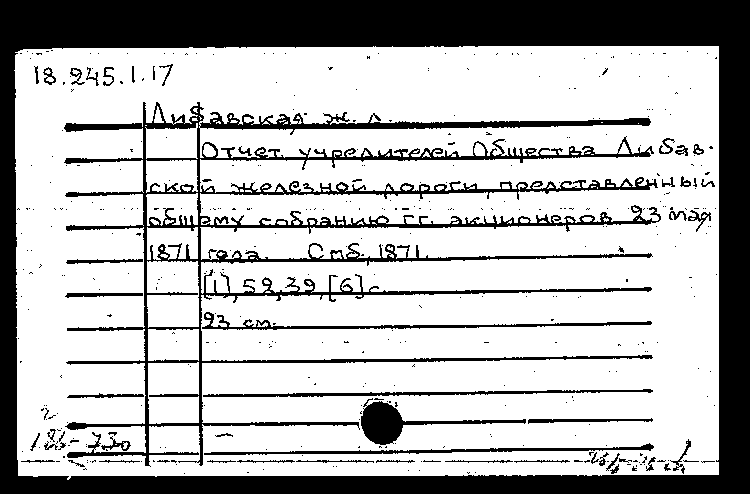 18.245.1.17
Либавская ж. д.
Отчет учредителей Общества Либав-
ской железной дороги, представленный
общему собранию гг. акционеров 23 мая
1871 года. Спб, 1871.
[1], 52, 39, [6] с.
23 см.
186-730